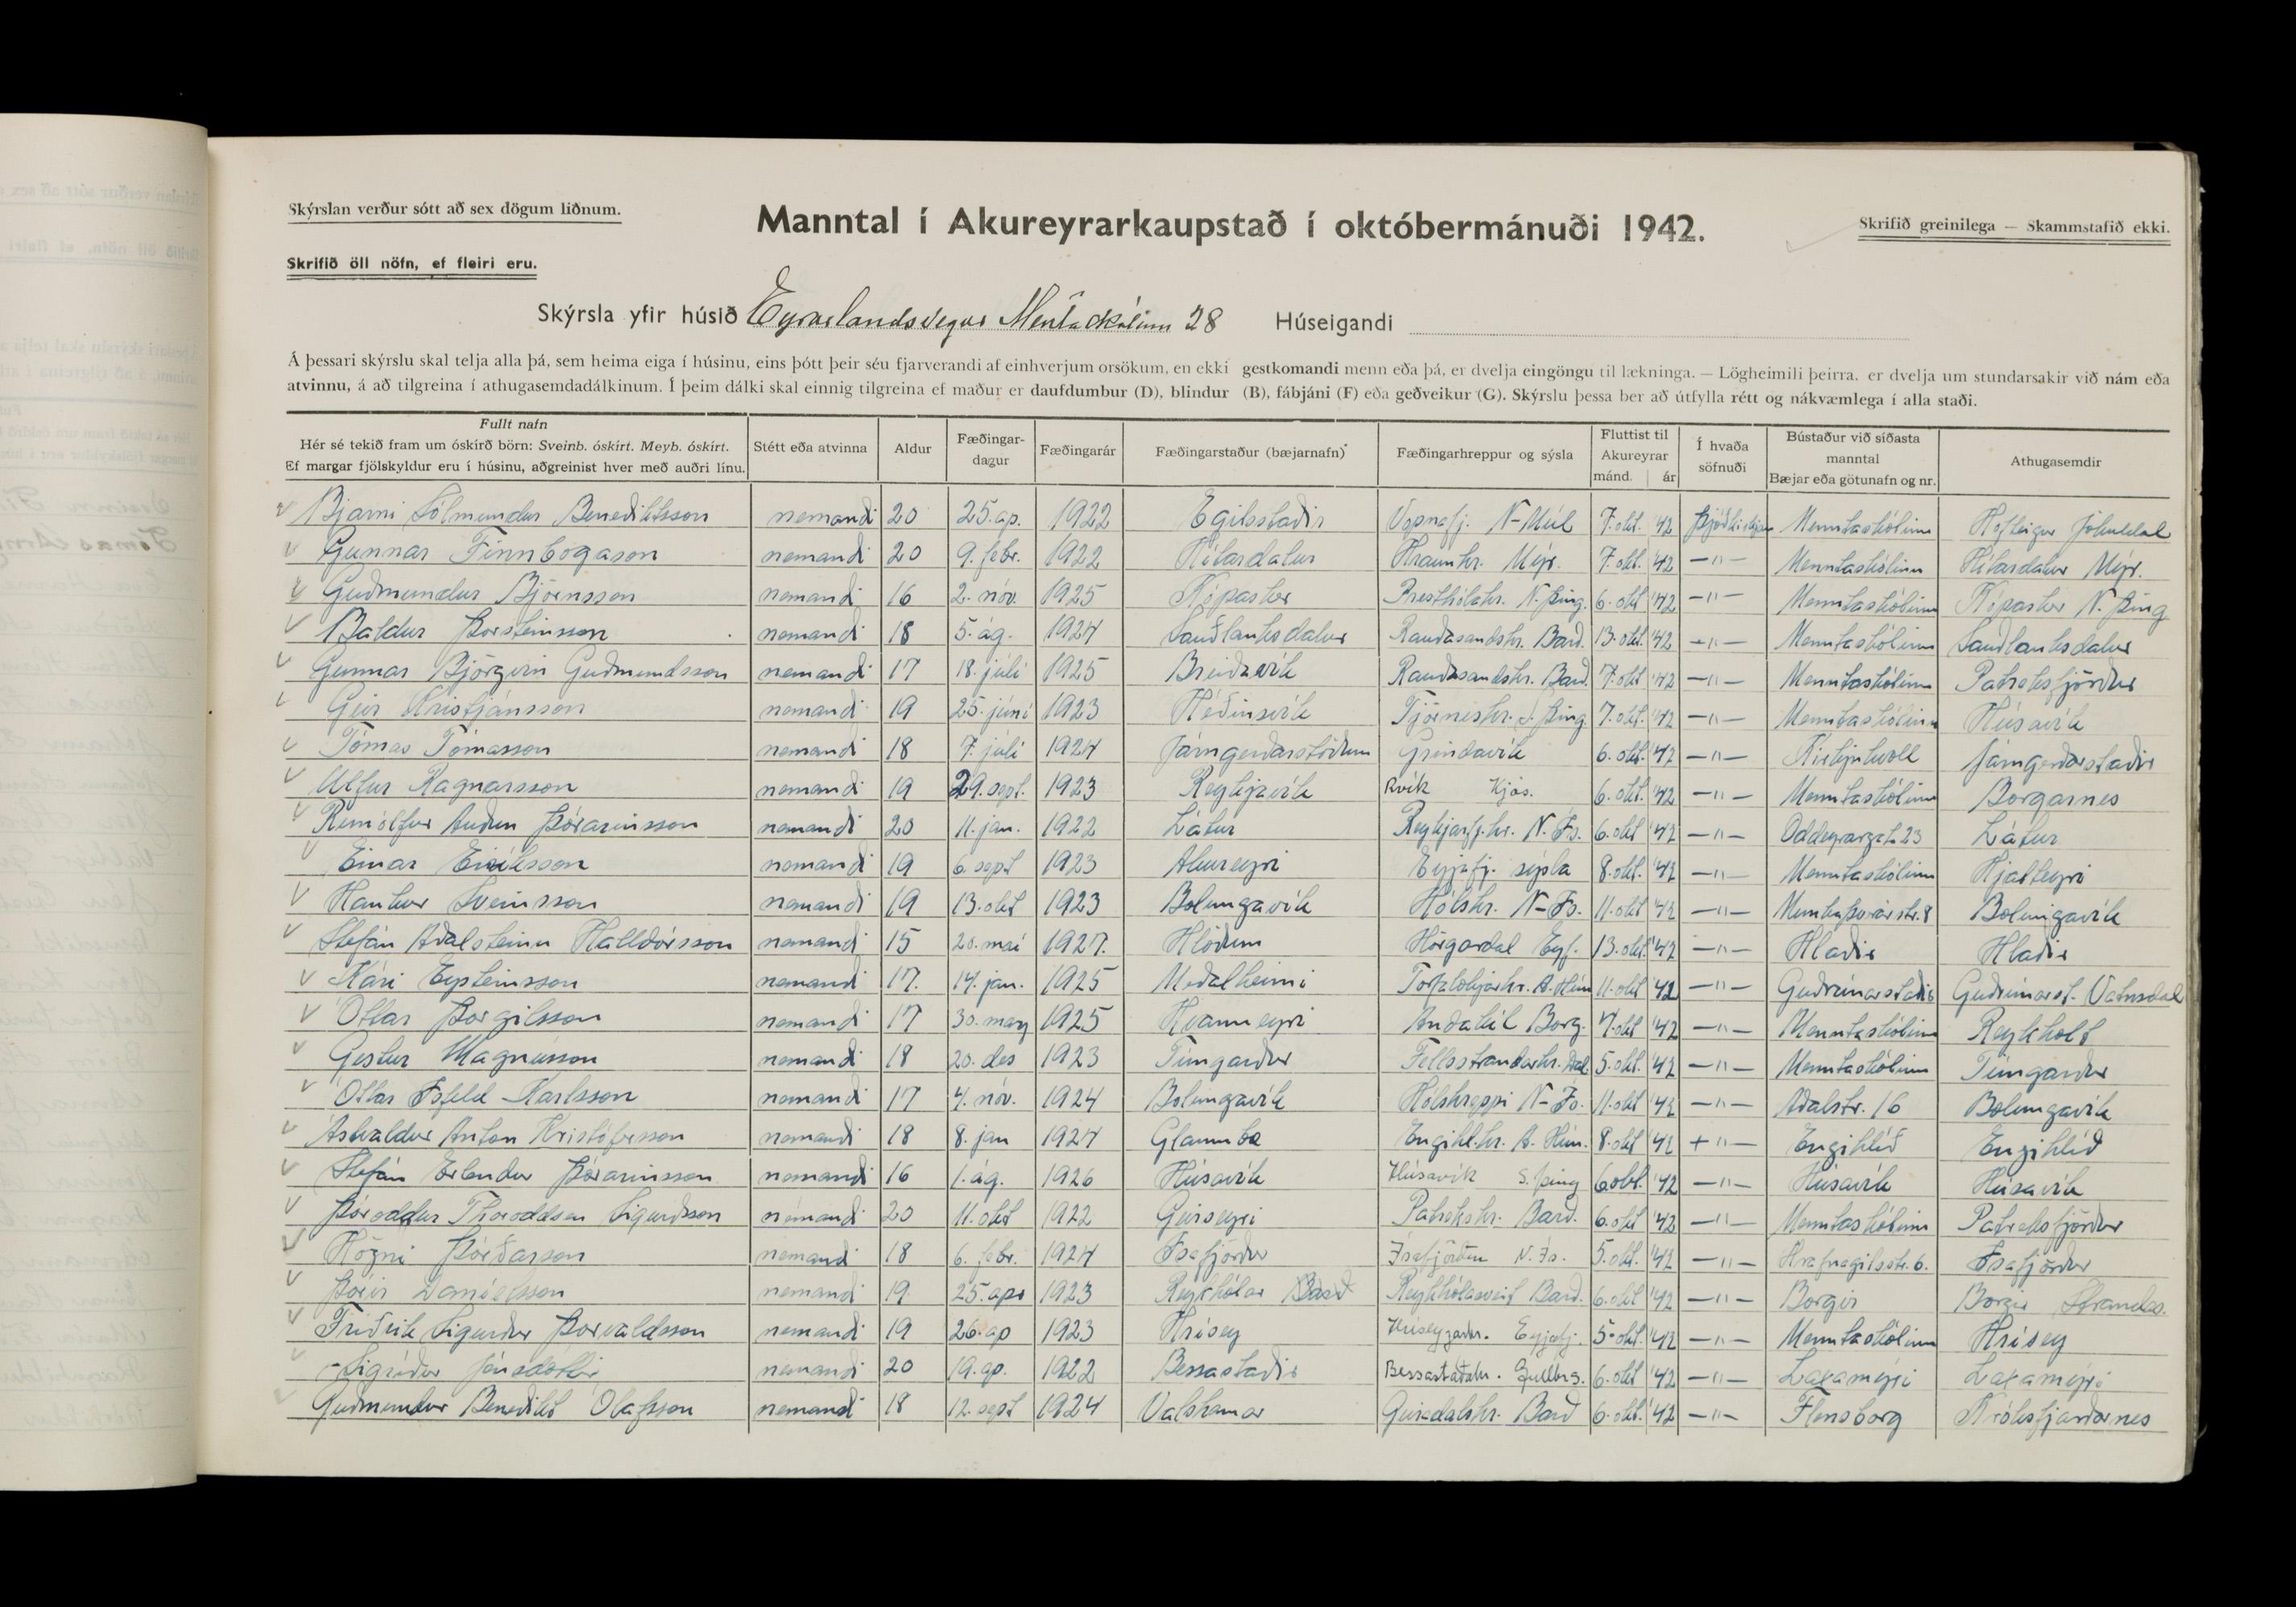 Skýrslan verður sótt að sex dögum liðnum.
Manntal í Akureyrarkaupstað í októbermánuði 1942.
Skrifið greinilega — Skammstafið ekki.
Skrifið öll nöfn, ef fleiri eru.
Skýrsla yfir húsið Eyrarlandsvegur Mentaskólinn 28 Húseigandi
Á þessari skýrslu skal telja alla þá, sem heima eiga í húsinu, eins þótt þeir séu fjarverandi af einhverjum orsökum, en ekki gestkomandi menn eða þá, er dvelja eingöngu til lækninga. — Lögheimili þeirra, er dvelja um stundarsakir við nám eða
atvinnu, á að tilgreina í athugasemdadálkinum. Í þeim dálki skal einnig tilgreina ef maður er daufdumbur (D), blindur (B), fábjáni (F) eða geðveikur (G). Skýrslu þessa ber að útfylla rétt og nákvæmlega í alla staði.
Fullt nafn
Hér sé tekið fram um óskírð börn: Sveinb. óskírt. Meyb. óskírt.
Ef margar fjölskyldur eru í húsinu, aðgreinist hver með auðri línu.
Stétt eða atvinna
Aldur
Fæðingar-
dagur
Fæðingarár
Fæðingarstaður (bæjarnafn)
Fæðingarhreppur og sýsla
Fluttist til
Akureyrar
mánd. ár
Í hvaða
söfnuði
Bústaður við síðasta
manntal
Bæjar eða götunafn og nr.
Athugasemdir
Bjarni Sólmundur Benediktsson nemandi 20 25. ap. 1922 Egilsstaðir Vopnafj. N-Múl 7. okt. '42 Þjóðkirkjan Menntaskólinn Hofteigur Jökuldal
Gunnar Finnbogason nemandi 20 9. febr. 1922 Hítardalur Hraunhr. Mýr. 7. okt. '42 —"— Menntaskólinn Hítardalur Mýr.
Guðmundur Björnsson nemandi 16 2. nóv. 1925 Kópasker Presthólahr. N. Þing. 6. okt '42 —"— Menntaskólinn Kópasker N. Þing
Baldur Þorsteinsson nemandi 18 5. ág. 1924 Sauðlauksdalur Rauðasandshr. Barð. 13. okt. '42 —"— Menntaskólinn Sauðlauksdalur
Gunnar Björgvin Guðmundsson nemandi 17 18. júlí 1925 Breiðavík Rauðasandshr. Barð. 7. okt '42 —"— Menntaskólinn Patreksfjörður
Geir Kristjánsson nemandi 19 25. júní 1923 Héðinsvík Tjörneshr. S. Þing. 7. okt. '42 —"— Menntaskólinn Húsavík
Tómas Tómasson nemandi 18 7. júlí 1924 Járngerðarstöðum Grindavík 6. okt. '42 —"— Kirkjuhvoll Járngerðarstaðir
Úlfur Ragnarsson nemandi 19 29. sept. 1923 Reykjavík Rvík Kjós. 6. okt. '42 —"— Menntaskólinn Borgarnes
Runólfur Auðun Þórarinsson nemandi 20 11. jan. 1922 Látur Reykjarfj.hr. N. Ís. 6. okt '42 —"— Oddeyrargt. 23 Látur
Einar Eiríksson nemandi 19 6. sept 1923 Akureyri Eyjafj. sýsla 8. okt. '42 —"— Menntaskólinn Hjalteyri
Haukur Sveinsson nemandi 19 13. okt 1923 Bolungavík Hólshr. N-Ís. 11. okt '42 —"— Bolungavík
Stefán Aðalsteinn Halldórsson nemandi 15 20. maí 1927. Hlöðum Hörgárdal Eyf. 13. okt. '42 —"— Hlaðir Hlaðir
Kári Eysteinsson nemandi 17. 14. jan. 1925 Meðalheimi Torfalækjarhr. A. Hún 11. okt '42 —"— Guðrúnarstaðir Guðrúnarst. Vatnsdal
Ottar Þorgilsson nemandi 17 30. marz 1925 Hvanneyri Andakíl Borg. 7. okt '42 —"— Menntaskólinn Reykholt
Gestur Magnússon nemandi 18 20. des 1923 Túngarður Fellsstrandarhr. Dal. 5. okt. '42 —"— Menntaskólinn Túngarður
Ottar Ísfeld Karlsson nemandi 17 4. nóv. 1924 Bolungavík Hólshreppi N-Ís. 11. okt '42 —"— Aðalstr. 16 Bolungavík
Ásvaldur Anton Kristófersson nemandi 18 8. jan 1924 Glaumbæ Engihl.hr. A. Hún. 8. okt '42 + "— Engihlíð Engihlíð
Stefán Erlendur Þórarinsson nemandi 16 1. ág. 1926 Húsavík Húsavík S. Þing 6. okt. '42 —"— Húsavík Húsavík
Þóroddur Thoroddsen Sigurðsson nemandi 20 11. okt 1922 Geirseyri Patrekshr. Barð. 6. okt '42 —"— Menntaskólinn Patreksfjörður
Högni Þórðarson nemandi 18 6. febr. 1924 Ísafjörður Ísafjörður N. Ís. 5. okt. '42 —"— Hrafnagilsstr. 6. Ísafjörður
Þórir Daníelsson nemandi 19 25. apr 1923 Reykhólar Barð Reykhólasveit Barð. 6. okt '42 —"— Borgir Borgir Strandas.
Friðrik Sigurður Þorvaldsson nemandi 19 26. ap 1923 Hrísey Hríseyjarhr. Eyjafj. 5. okt. '42 —"— Menntaskólinn Hrísey
Sigríður Jónsdóttir nemandi 20 19. ap. 1922 Bessastaðir Bessastaðahr. Gullbrs. 6. okt '42 —"— Laxamýri Laxamýri
Guðmundur Benedikt Ólafsson nemandi 18 12. sept 1924 Valshamar Geiradalshr. Barð 6. okt. '42 —"— Flensborg Króksfjarðarnes